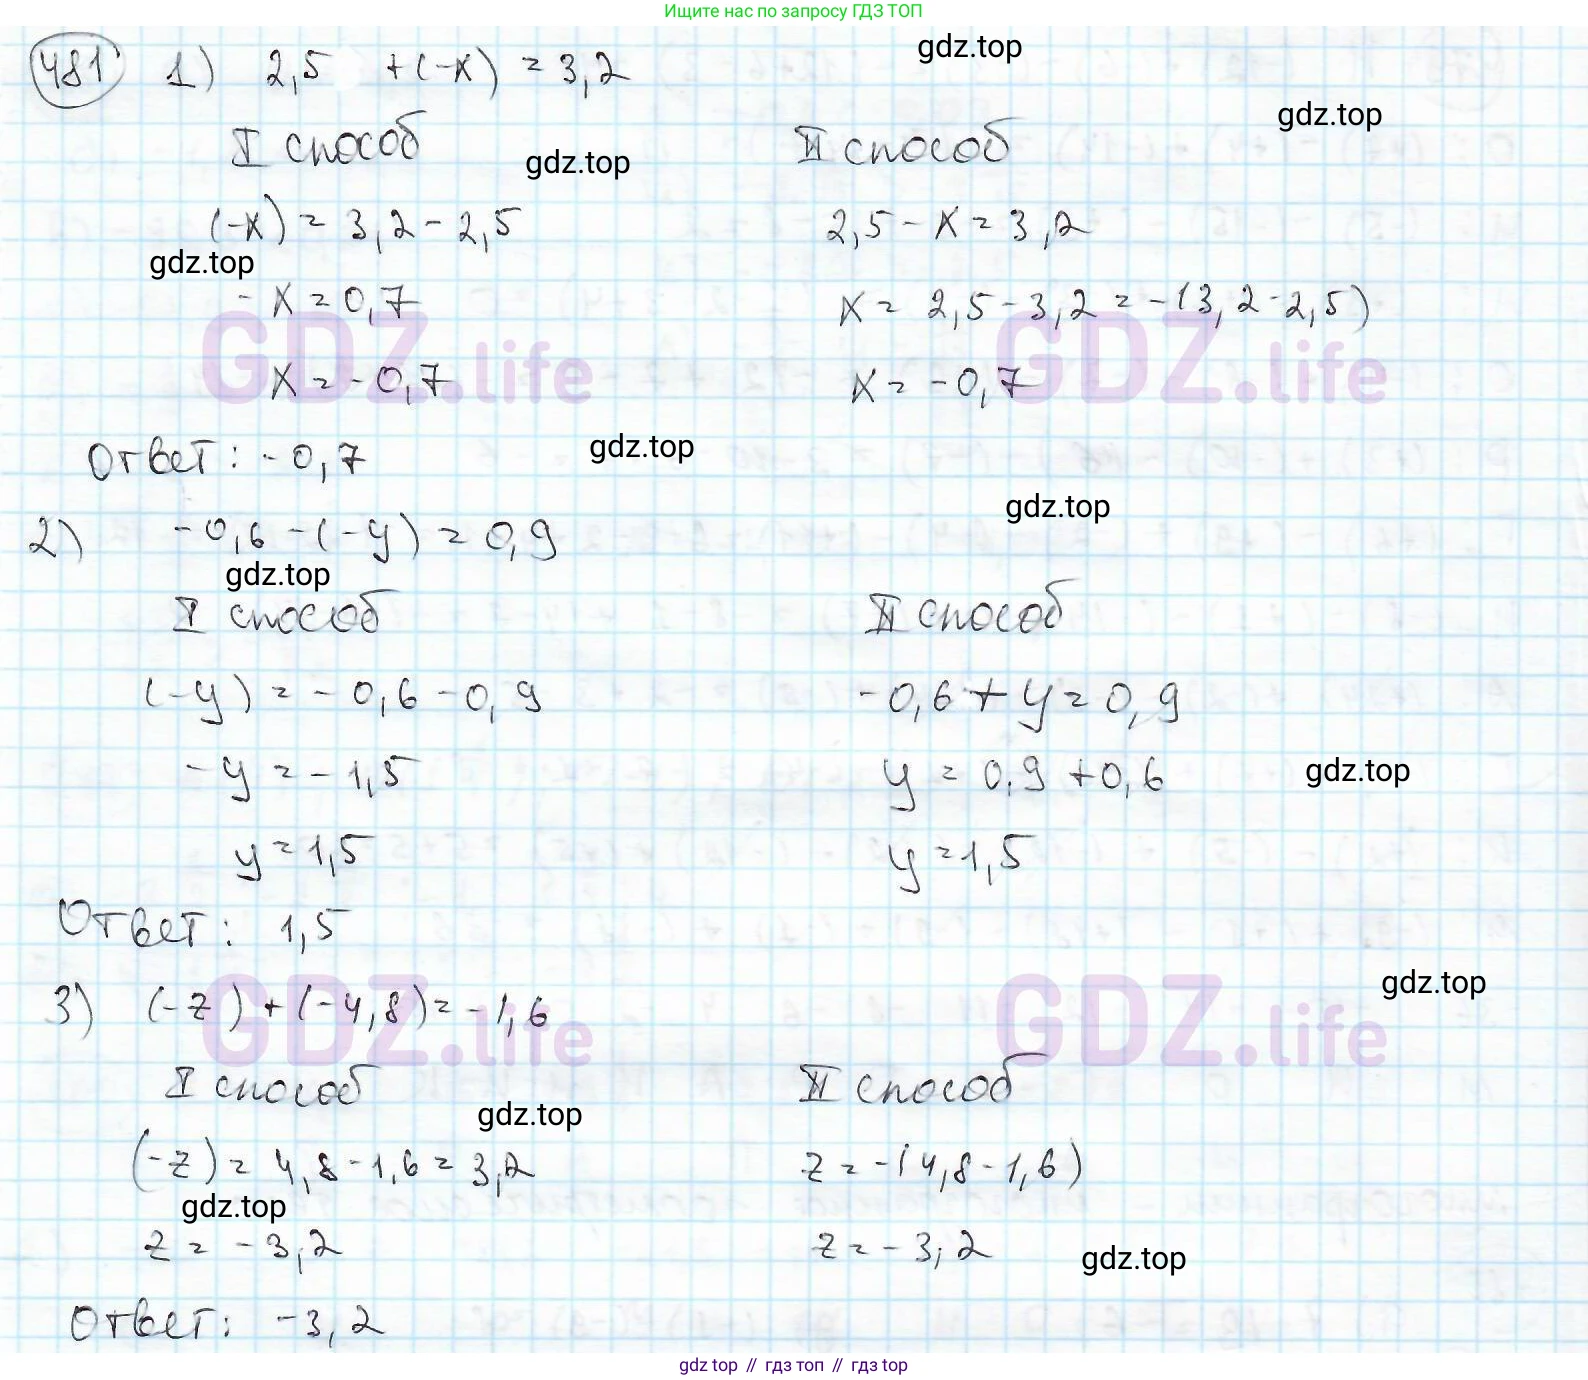 Ищите нас по запросу ГДЗ ТОП
481 1) 2,5 +(-x) = 3,2
gdz.top
gdz.top
I способ
II способ
gdz.top
(-x) = 3,2 - 2,5
2,5 - x = 3,2
gdz.top
- x = 0,7
x = 2,5 - 3,2 = -(3,2 - 2,5)
GDZ.life
GDZ.life
x = - 0,7
x = - 0,7
Ответ: - 0,7
gdz.top
gdz.top
2) - 0,6 - (- y) = 0,9
gdz.top
I способ
II способ
(- y) = - 0,6 - 0,9
- 0,6 + y = 0,9
- y = - 1,5
y = 0,9 + 0,6
gdz.top
y = 1,5
y = 1,5
Ответ: 1,5
gdz.top
3) (- z) + (- 4,8) = - 1,6
GDZ.life
GDZ.life
I способ
II способ
gdz.top
(- z) = 4,8 - 1,6 = 3,2
z = - (4,8 - 1,6)
gdz.top
z = - 3,2
z = - 3,2
gdz.top
Ответ: - 3,2
gdz top // гдз топ // гдз top